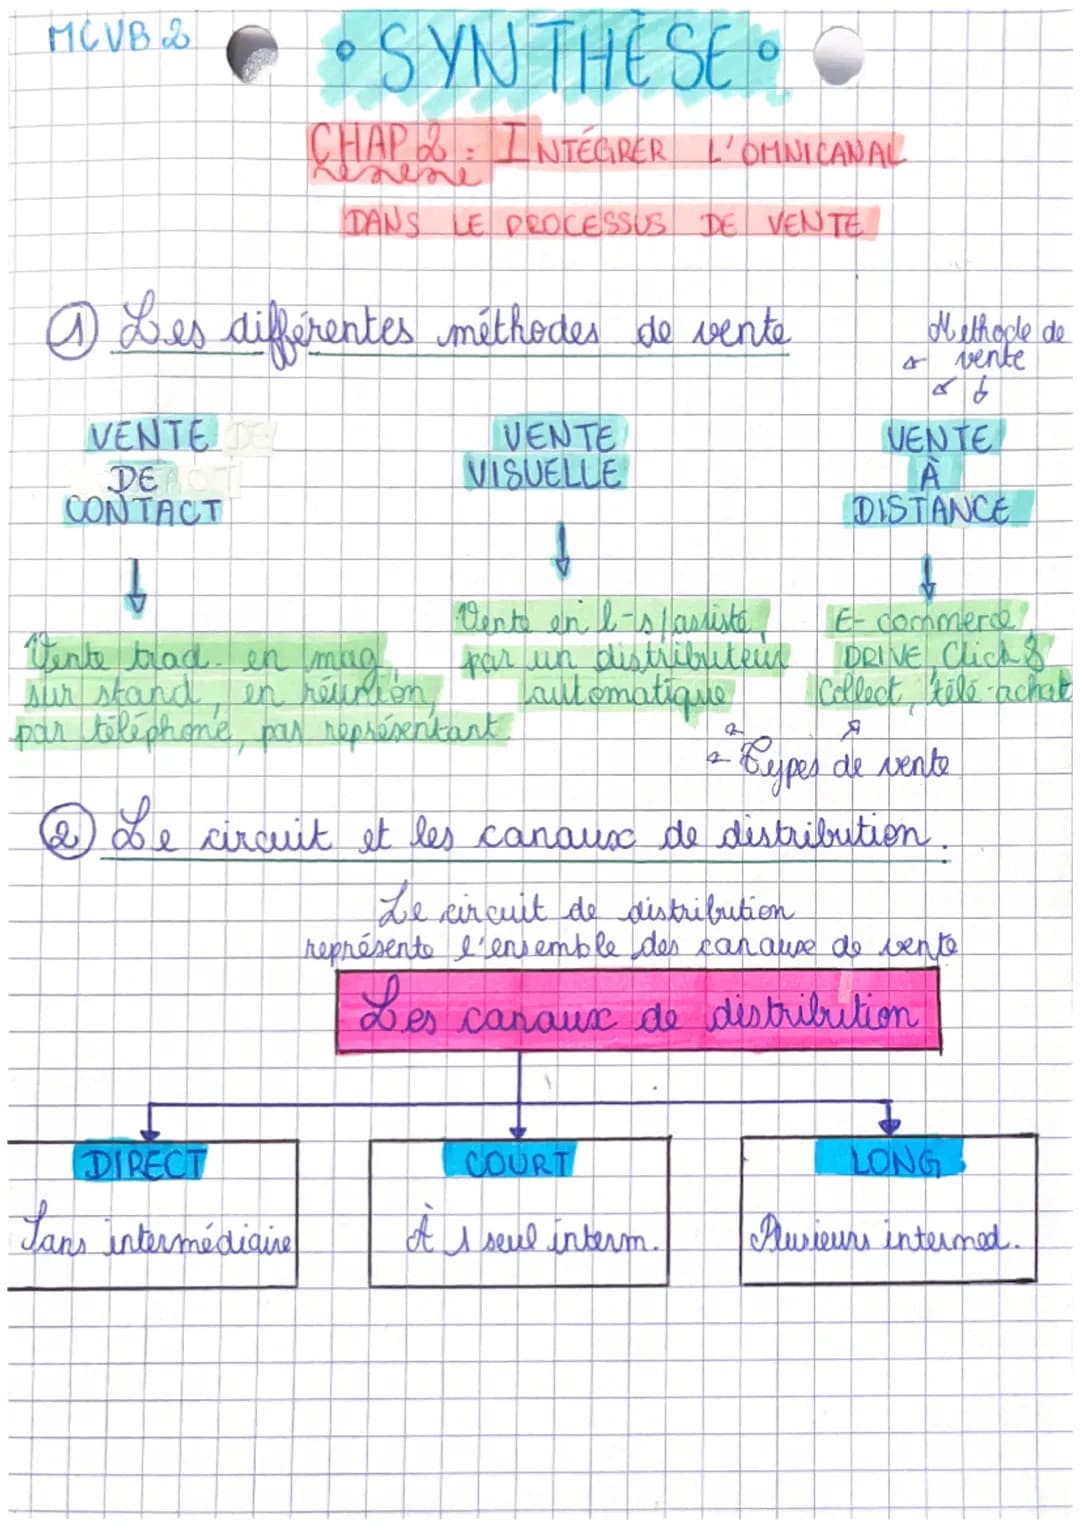 MCVB2
• SYNTHÈSE •
CHAP 2 : INTÉGRER L'OMNICANAL
DANS LE PROCESSUS DE VENTE
① Les différentes méthodes de vente
Methode de
vente
VENTE
DE
CONTACT
VENTE
VISUELLE
VENTE
À
DISTANCE
Vente trad. en mag,
sur stand, en réunion,
par téléphone, par représentant
Vente en l-s/assisté,
par un distributeur
automatique
E-commerce,
DRIVE, Click &
Collect, télé-achat
Types de vente
② Le circuit et les canaux de distribution.
Le circuit de distribution
représente l'ensemble des canaux de vente
Les canaux de distribution
DIRECT
Sans intermédiaire
COURT
À 1 seul interm.
LONG
Plusieurs intermed.